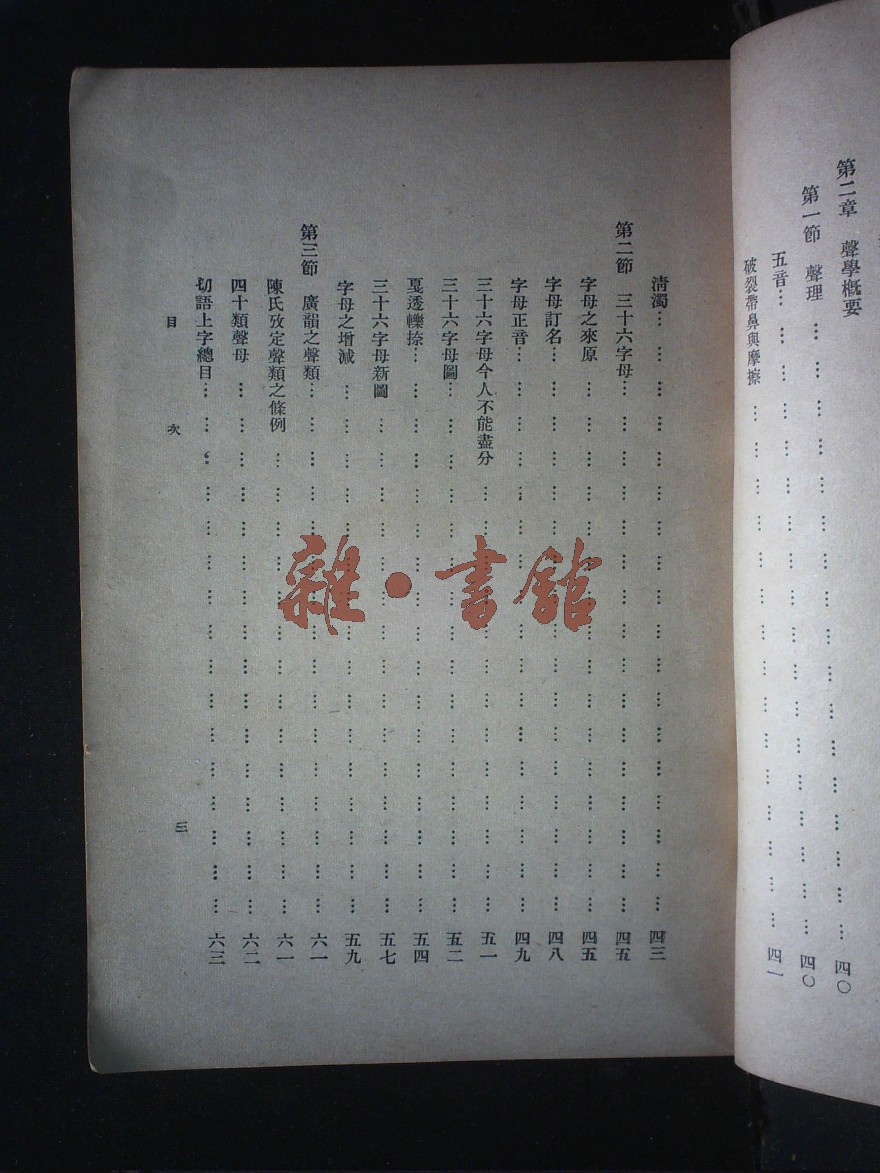 第二章　聲學概要 … … … … … … … … … … … … … … … 四〇
第一節　聲理 … … … … … … … … … … … … … … … … 四〇
五音 … … … … … … … … … … … … … … … … … 四一
破裂帶鼻與摩擦 … … … … … … … … … … … … … … …
清濁 … … … … … … … … … … … … … … … … … … 四三
第二節　三十六字母 … … … … … … … … … … … … … … … … 四五
字母之來原 … … … … … … … … … … … … … … … … 四五
字母訂名 … … … … … … … … … … … … … … … … … 四八
字母正音 … … … … … … … … … … … … … … … … … 四九
三十六字母今人不能盡分 … … … … … … … … … … … … … 五一
三十六字母圖 … … … … … … … … … … … … … … … … 五二
戛透轢捺 … … … … … … … … … … … … … … … … … 五四
三十六字母新圖 … … … … … … … … … … … … … … … 五七
字母之增減 … … … … … … … … … … … … … … … … 五九
第三節　廣韻之聲類 … … … … … … … … … … … … … … … … 六一
陳氏攷定聲類之條例 … … … … … … … … … … … … … … 六一
四十類聲母 … … … … … … … … … … … … … … … … 六二
切語上字總目 … … … … … … … … … … … … … … … … 六三
目　次
三
雜・書館